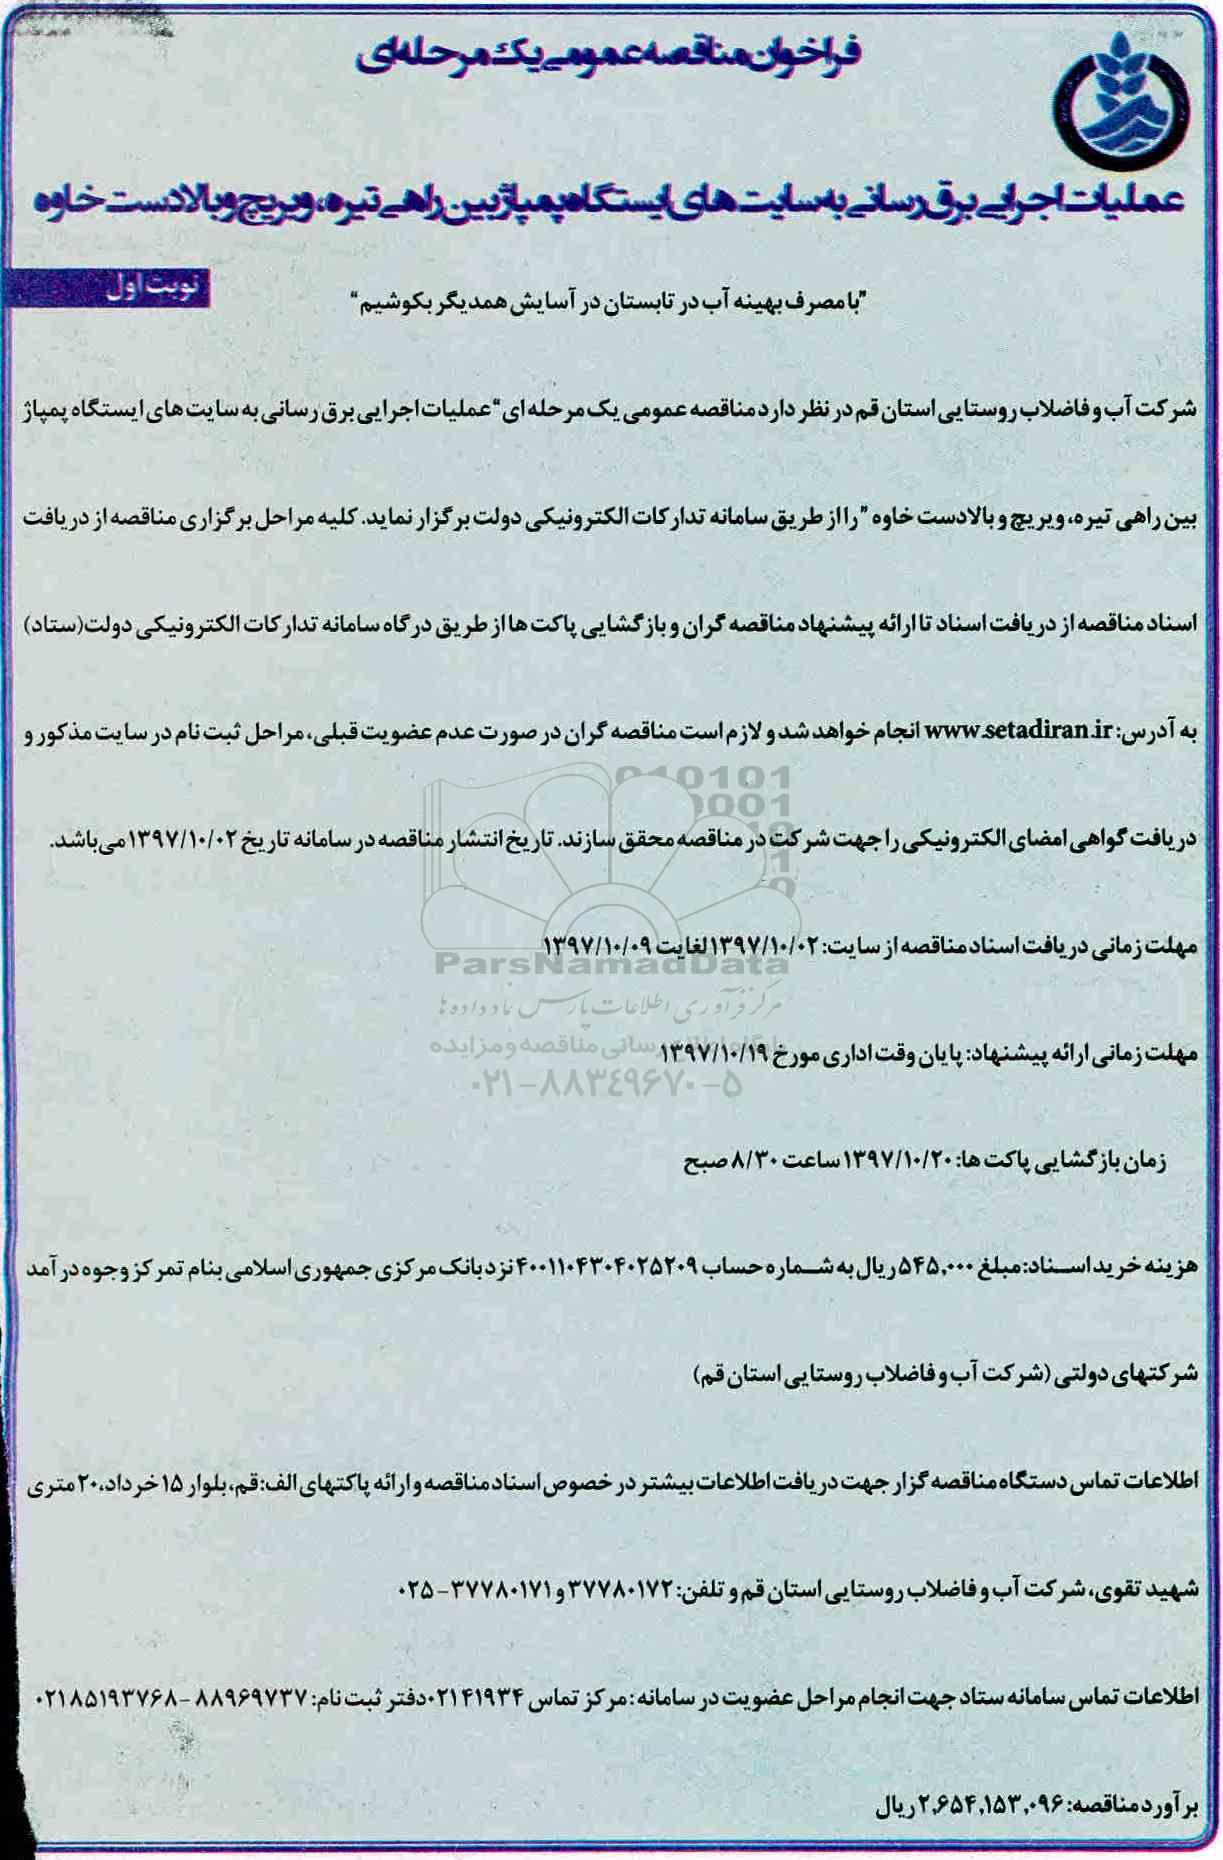 فراخوان مناقصه عمومی یک مرحله‌ای
عملیات اجرایی برق رسانی به سایت های ایستگاه پمپاژ بین راهی تیره، ویریچ و بالادست خاوه
نوبت اول
"با مصرف بهینه آب در تابستان در آسایش همدیگر بکوشیم"
شرکت آب و فاضلاب روستایی استان قم در نظر دارد مناقصه عمومی یک مرحله ای "عملیات اجرایی برق رسانی به سایت های ایستگاه پمپاژ
بین راهی تیره، ویریچ و بالادست خاوه" را از طریق سامانه تدارکات الکترونیکی دولت برگزار نماید. کلیه مراحل برگزاری مناقصه از دریافت
اسناد مناقصه از دریافت اسناد تا ارائه پیشنهاد مناقصه گران و بازگشایی پاکت ها از طریق درگاه سامانه تدارکات الکترونیکی دولت(ستاد)
به آدرس: www.setadiran.ir انجام خواهد شد و لازم است مناقصه گران در صورت عدم عضویت قبلی، مراحل ثبت نام در سایت مذکور و
دریافت گواهی امضای الکترونیکی را جهت شرکت در مناقصه محقق سازند. تاریخ انتشار مناقصه در سامانه تاریخ ۱۳۹۷/۱۰/۰۲ می‌باشد.
مهلت زمانی دریافت اسناد مناقصه از سایت: ۱۳۹۷/۱۰/۰۲ لغایت ۱۳۹۷/۱۰/۰۹
ParsNamadData
مرکز فرآوری اطلاعات پارس نماد داده ها
مهلت زمانی ارائه پیشنهاد: پایان وقت اداری مورخ ۱۳۹۷/۱۰/۱۹
پایگاه اطلاع رسانی مناقصه و مزایده
۰۲۱-۸۸۳۴۹۶۷۰-۵
زمان بازگشایی پاکت ها: ۱۳۹۷/۱۰/۲۰ ساعت ۸/۳۰ صبح
هزینه خرید اسناد: مبلغ ۵۴۵,۰۰۰ ریال به شماره حساب ۴۰۰۱۱۰۴۳۰۴۰۲۵۲۰۹ نزد بانک مرکزی جمهوری اسلامی بنام تمرکز وجوه درآمد
شرکتهای دولتی (شرکت آب و فاضلاب روستایی استان قم)
اطلاعات تماس دستگاه مناقصه گزار جهت دریافت اطلاعات بیشتر در خصوص اسناد مناقصه و ارائه پاکتهای الف: قم، بلوار ۱۵ خرداد، ۲۰ متری
شهید تقوی، شرکت آب و فاضلاب روستایی استان قم و تلفن: ۳۷۷۸۰۱۷۲ و ۳۷۷۸۰۱۷۱-۰۲۵
اطلاعات تماس سامانه ستاد جهت انجام مراحل عضویت در سامانه: مرکز تماس ۰۲۱۴۱۹۳۴ دفتر ثبت نام: ۸۸۹۶۹۷۳۷-۰۲۱۸۵۱۹۳۷۶۸
برآورد مناقصه: ۲,۶۵۴,۱۵۳,۰۹۶ ریال